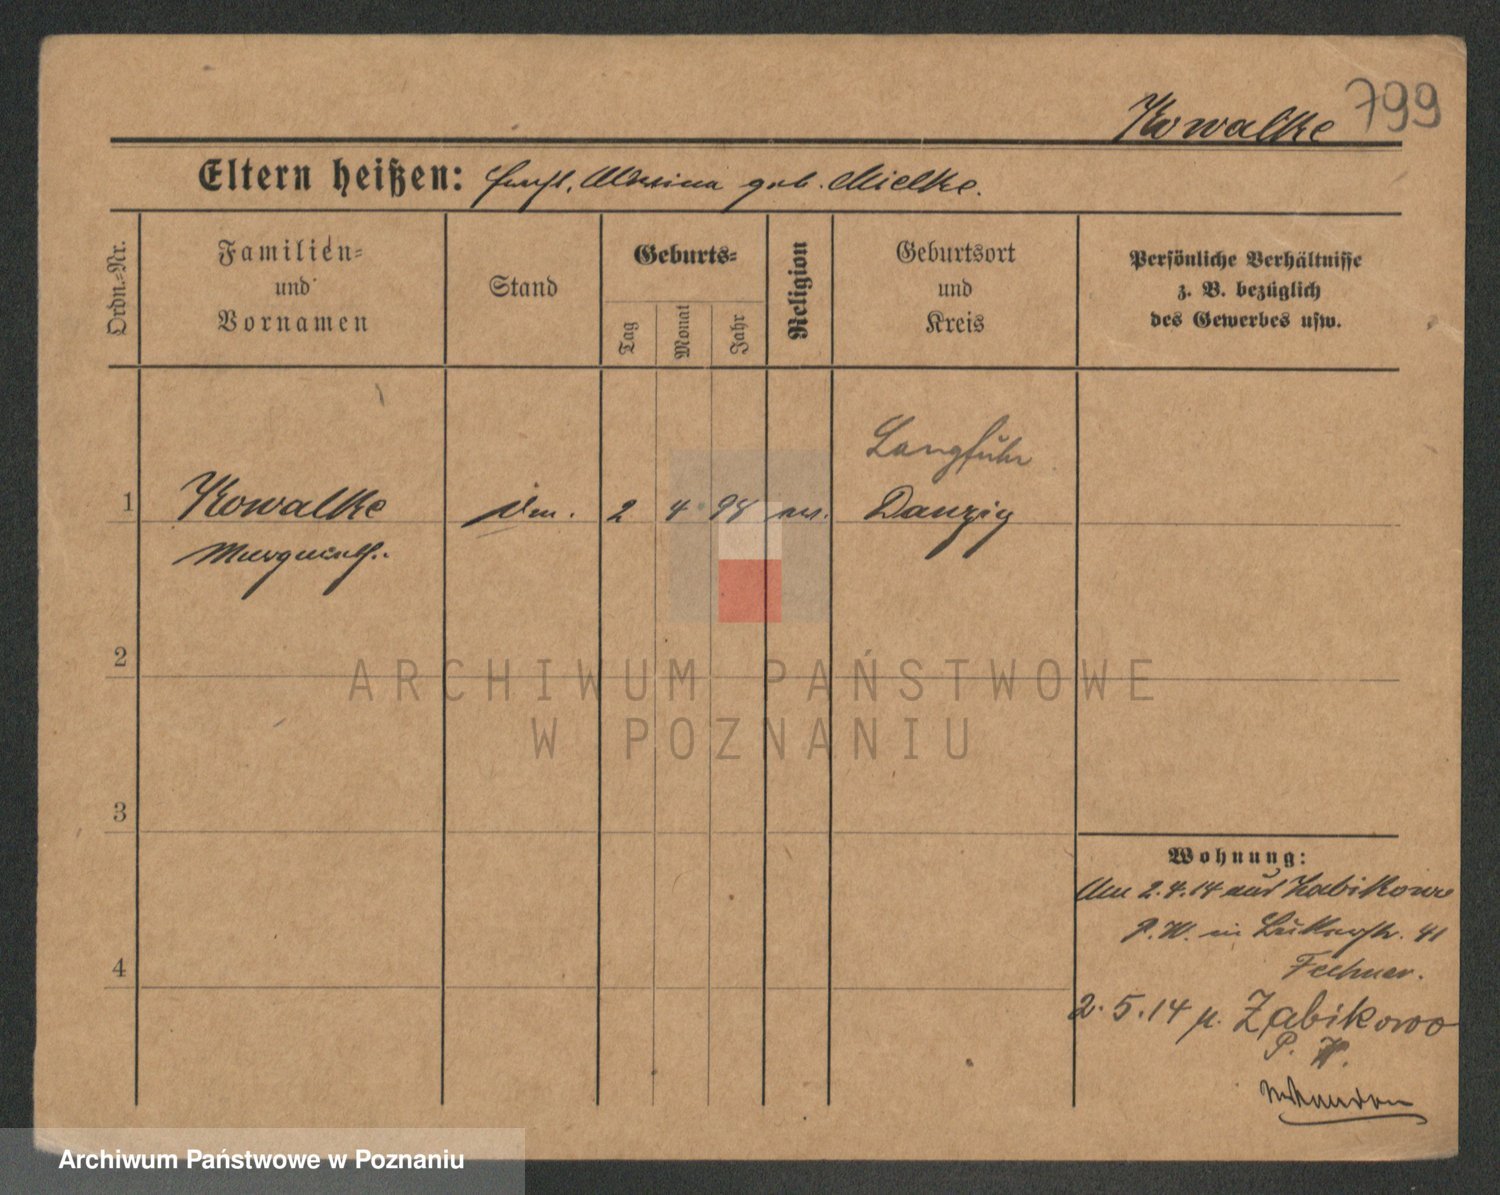 799
Kowalke
Eltern heißen: geb. Mielke.
Ordn.-Nr.
Familien-
und
Vornamen
Stand
Geburts-
Tag
Monat
Jahr
Religion
Geburtsort
und
Kreis
Persönliche Verhältnisse
z. B. bezüglich
des Gewerbes usw.
Langfuhr
1 Kowalke 2 4 94 ev. Danzig
2
3
4
ARCHIWUM PAŃSTWOWE
W POZNANIU
Wohnung:
Am 2.4.14 aus Zabikowo
P. W. in 41
Fechner.
2.5.14 n. Zabikowo
P. W.
Archiwum Państwowe w Poznaniu